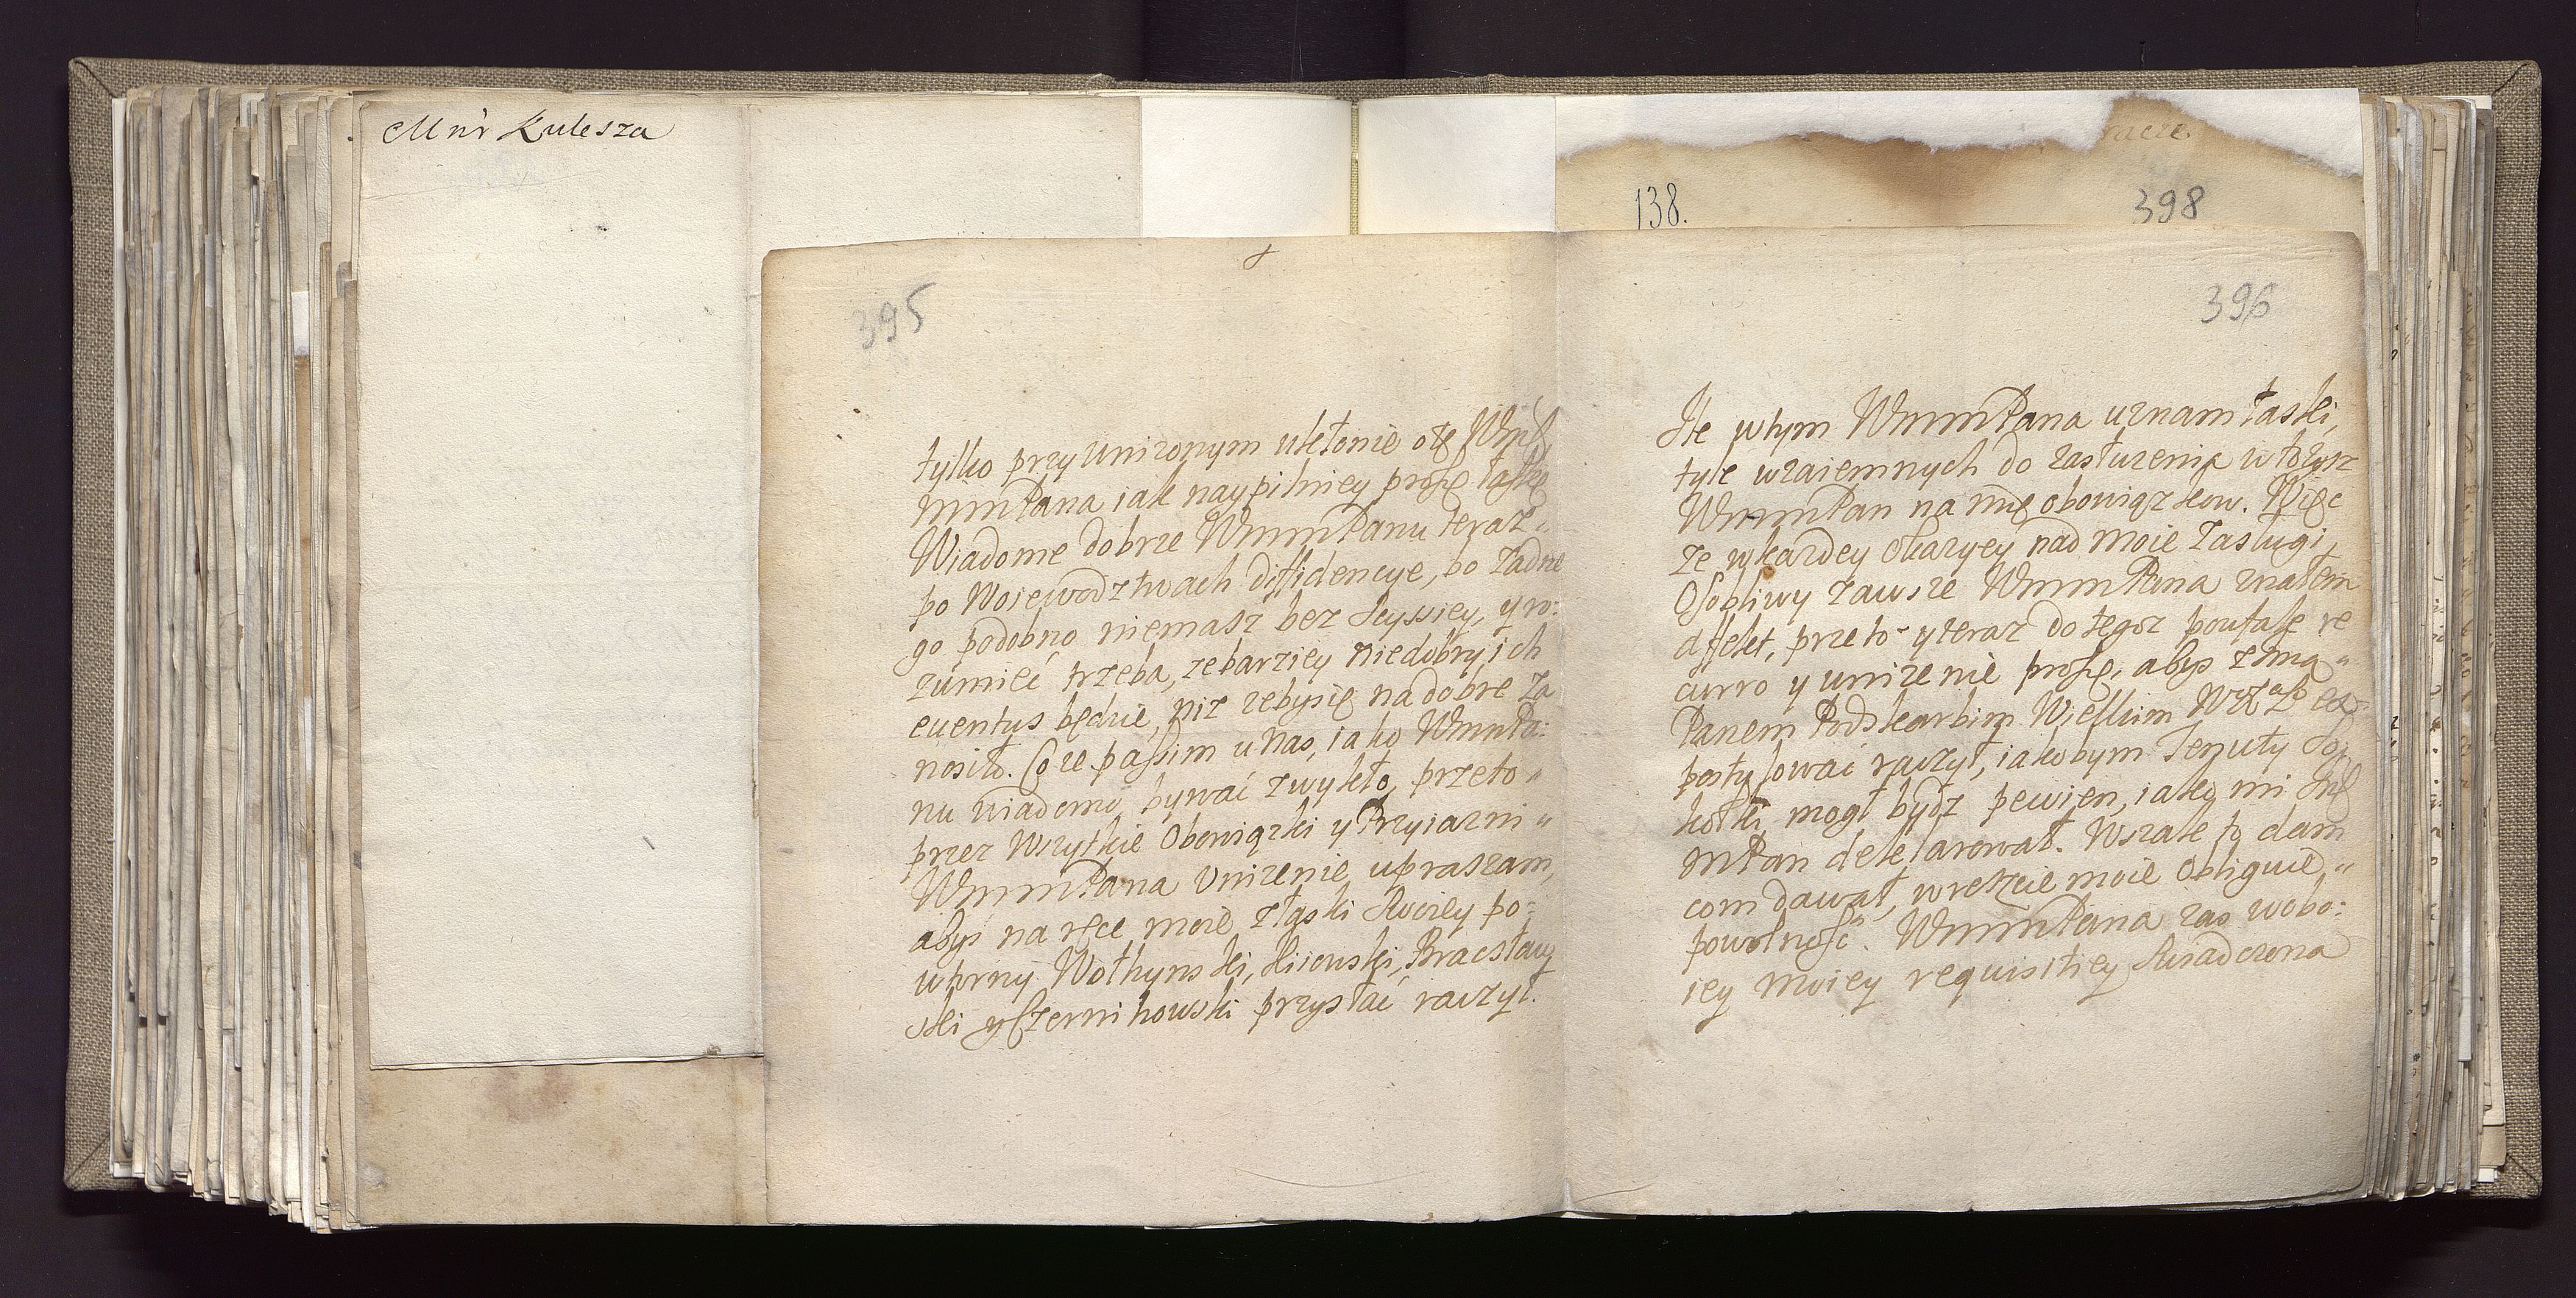 Mnr Kulesza
138.
398
395
tylko przy unizonym ukłonie otę Wmę
mmPana iak naypilniey proszę łaskę
Wiadome dobrze WmmmPanu teraz
po Woiewodztwach diffidencye, bo żadne
go podobno niemasz bez scyssiey, y ro:
zumieć trzeba, zebarziey niedobry ich
euentus będzie, niz zebysię nadobre za
nosiło. Co ze passim unas, iako WmmPa:
nu wiadomo, bywać zwykło, przeto
przez Wszytkie Obowiązki y Przyiazni
WmmmPana Unizenie upraszam,
abyś na ręce moie z łaski Swoiey po:
wtorny Wołhynski, Kiiowski, Bracsław
ski y Czernihowski przysłać raczył.
396
Ile wtym WmmmPana uznam łaski,
tyle wzaiemnych do zasłuzenia włozysz
WmmmPan na mię obowiązkow. Więc
ze wkazdey Okazyey nad moie Zasługi,
Osobliwy zawsze WmmmPana znałem
affekt, przeto y teraz do tegoz poufale re
curro y unizenie proszę, abys z Img
Panem Podskarbim Wielkim
postyłować raczył, iakobym
mogł bydz pewien, iako mi
mPan deklarował. Wszak to dam
com dawał, wrekcie moie Obliguię
powolność. WmmmPana zas wobo:
iey moiey requisitiey Swiadczona